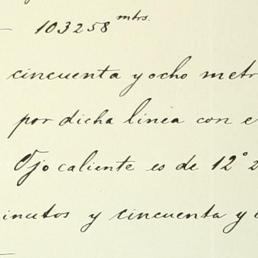 — 103258 mtrs.
cincuenta y ocho metr
por dicha linea con e
Ojo caliente es de 12° 2
inutos y cincuenta y